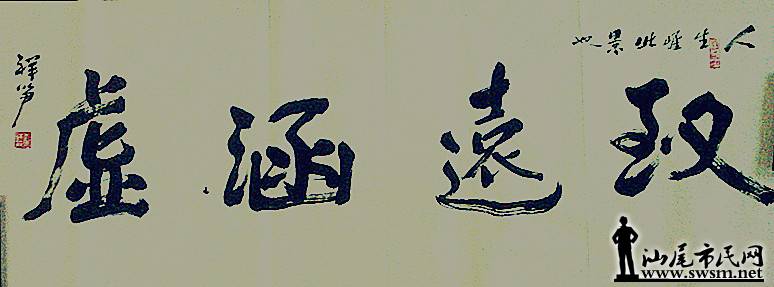 人生此景也
致遠涵虚
汕尾市民网
www.swsm.net